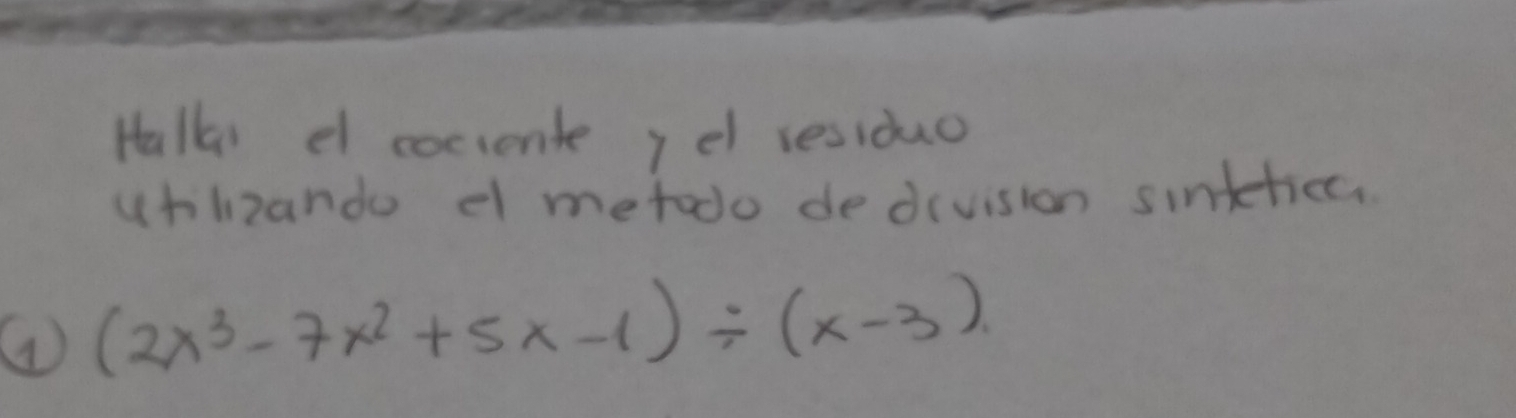 Hallar el cociente y el residuo
utilizando el metodo de division sintetica.
① (2x³ - 7x² + 5x - 1) ÷ (x - 3).